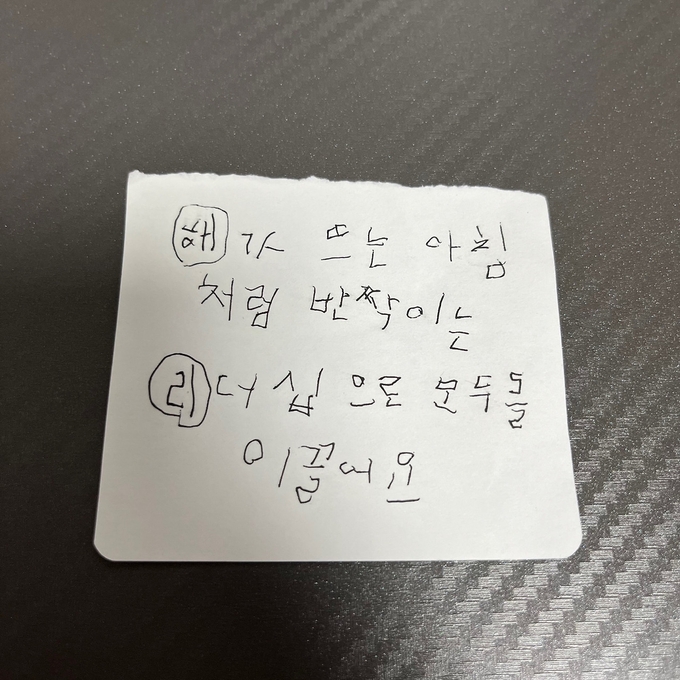 해가 뜨는 아침
처럼 반짝이는
리더십으로 모두들
이끌어요